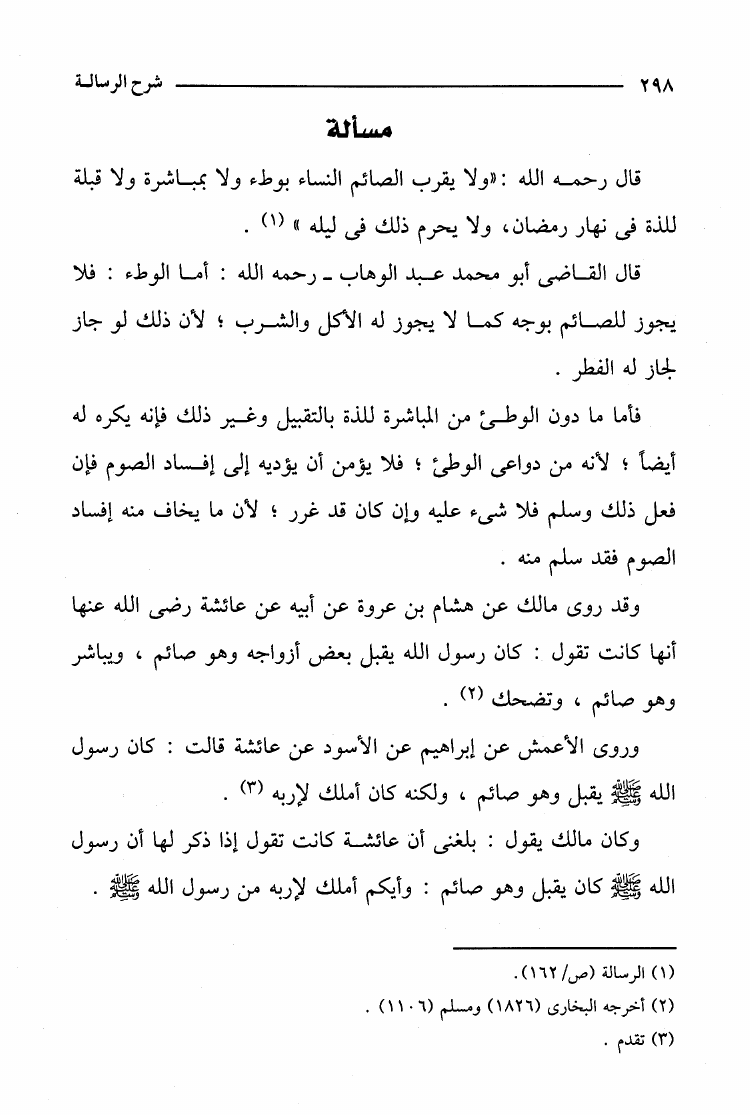 ٢٩٨ ــــــــــ شرح الرسالـة
مسألة
قال رحمـه الله : «ولا يقرب الصائم النساء بوطء ولا بمبـاشرة ولا قبلة
للذة فى نهار رمضان، ولا يحرم ذلك فى ليله » (١) .
قال القـاضى أبو محمد عـبد الوهاب ـ رحمه الله : أمـا الوطء : فلا
يجوز للصـائم بوجه كمـا لا يجوز له الأكل والشـرب ؛ لأن ذلك لو جاز
لجاز له الفطر .
فأما ما دون الوطـئ من المباشرة للذة بالتقبيل وغـير ذلك فإنه يكره له
أيضاً ؛ لأنه من دواعى الوطئ ؛ فلا يؤمن أن يؤديه إلى إفـساد الصوم فإن
فعل ذلك وسلم فلا شىء عليه وإن كان قد غرر ؛ لأن ما يخاف منه إفساد
الصوم فقد سلم منه .
وقد روى مالك عن هشام بن عروة عن أبيه عن عائشة رضى الله عنها
أنها كانت تقول : كان رسول الله يقبل بعض أزواجه وهو صائم ، ويباشر
وهو صائم ، وتضحك (٢) .
وروى الأعمش عن إبراهيم عن الأسود عن عائشة قالت : كان رسول
الله ﷺ يقبل وهو صائم ، ولكنه كان أملك لإربه (٣) .
وكان مالك يقول : بلغنى أن عائشـة كانت تقول إذا ذكر لها أن رسول
الله ﷺ كان يقبل وهو صائم : وأيكم أملك لإربه من رسول الله ﷺ .
(١) الرسالة (ص/ ١٦٢).
(٢) أخرجه البخارى (١٨٢٦) ومسلم (١١٠٦) .
(٣) تقدم .